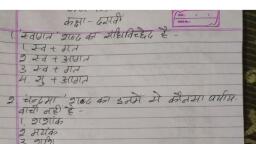 कक्षा - दसवीं
1. स्वागत शब्द का संधिविच्छेद है -
1 स्व + गत
2 स्व + आगत
3 स्व + गत
4 सु + आगत
2. चन्द्रमा शब्द का इनमें से कौनसा पर्याय
वाची नहीं है -
1 शशांक
2 मयंक
3 शशि